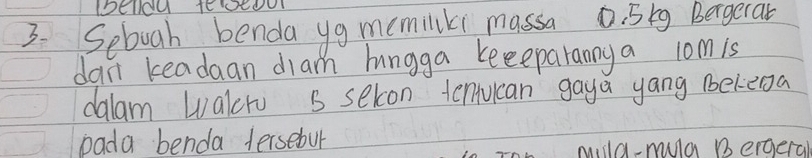 benda tersebut
3. Sebuah benda yg memiliki massa 0.5 kg Bergerak
dari keadaan diam hingga keeeparannya 10 m/s
dalam waktu 5 sekon tentukan gaya yang Bekerja
pada benda tersebut
mula-mula Bergera